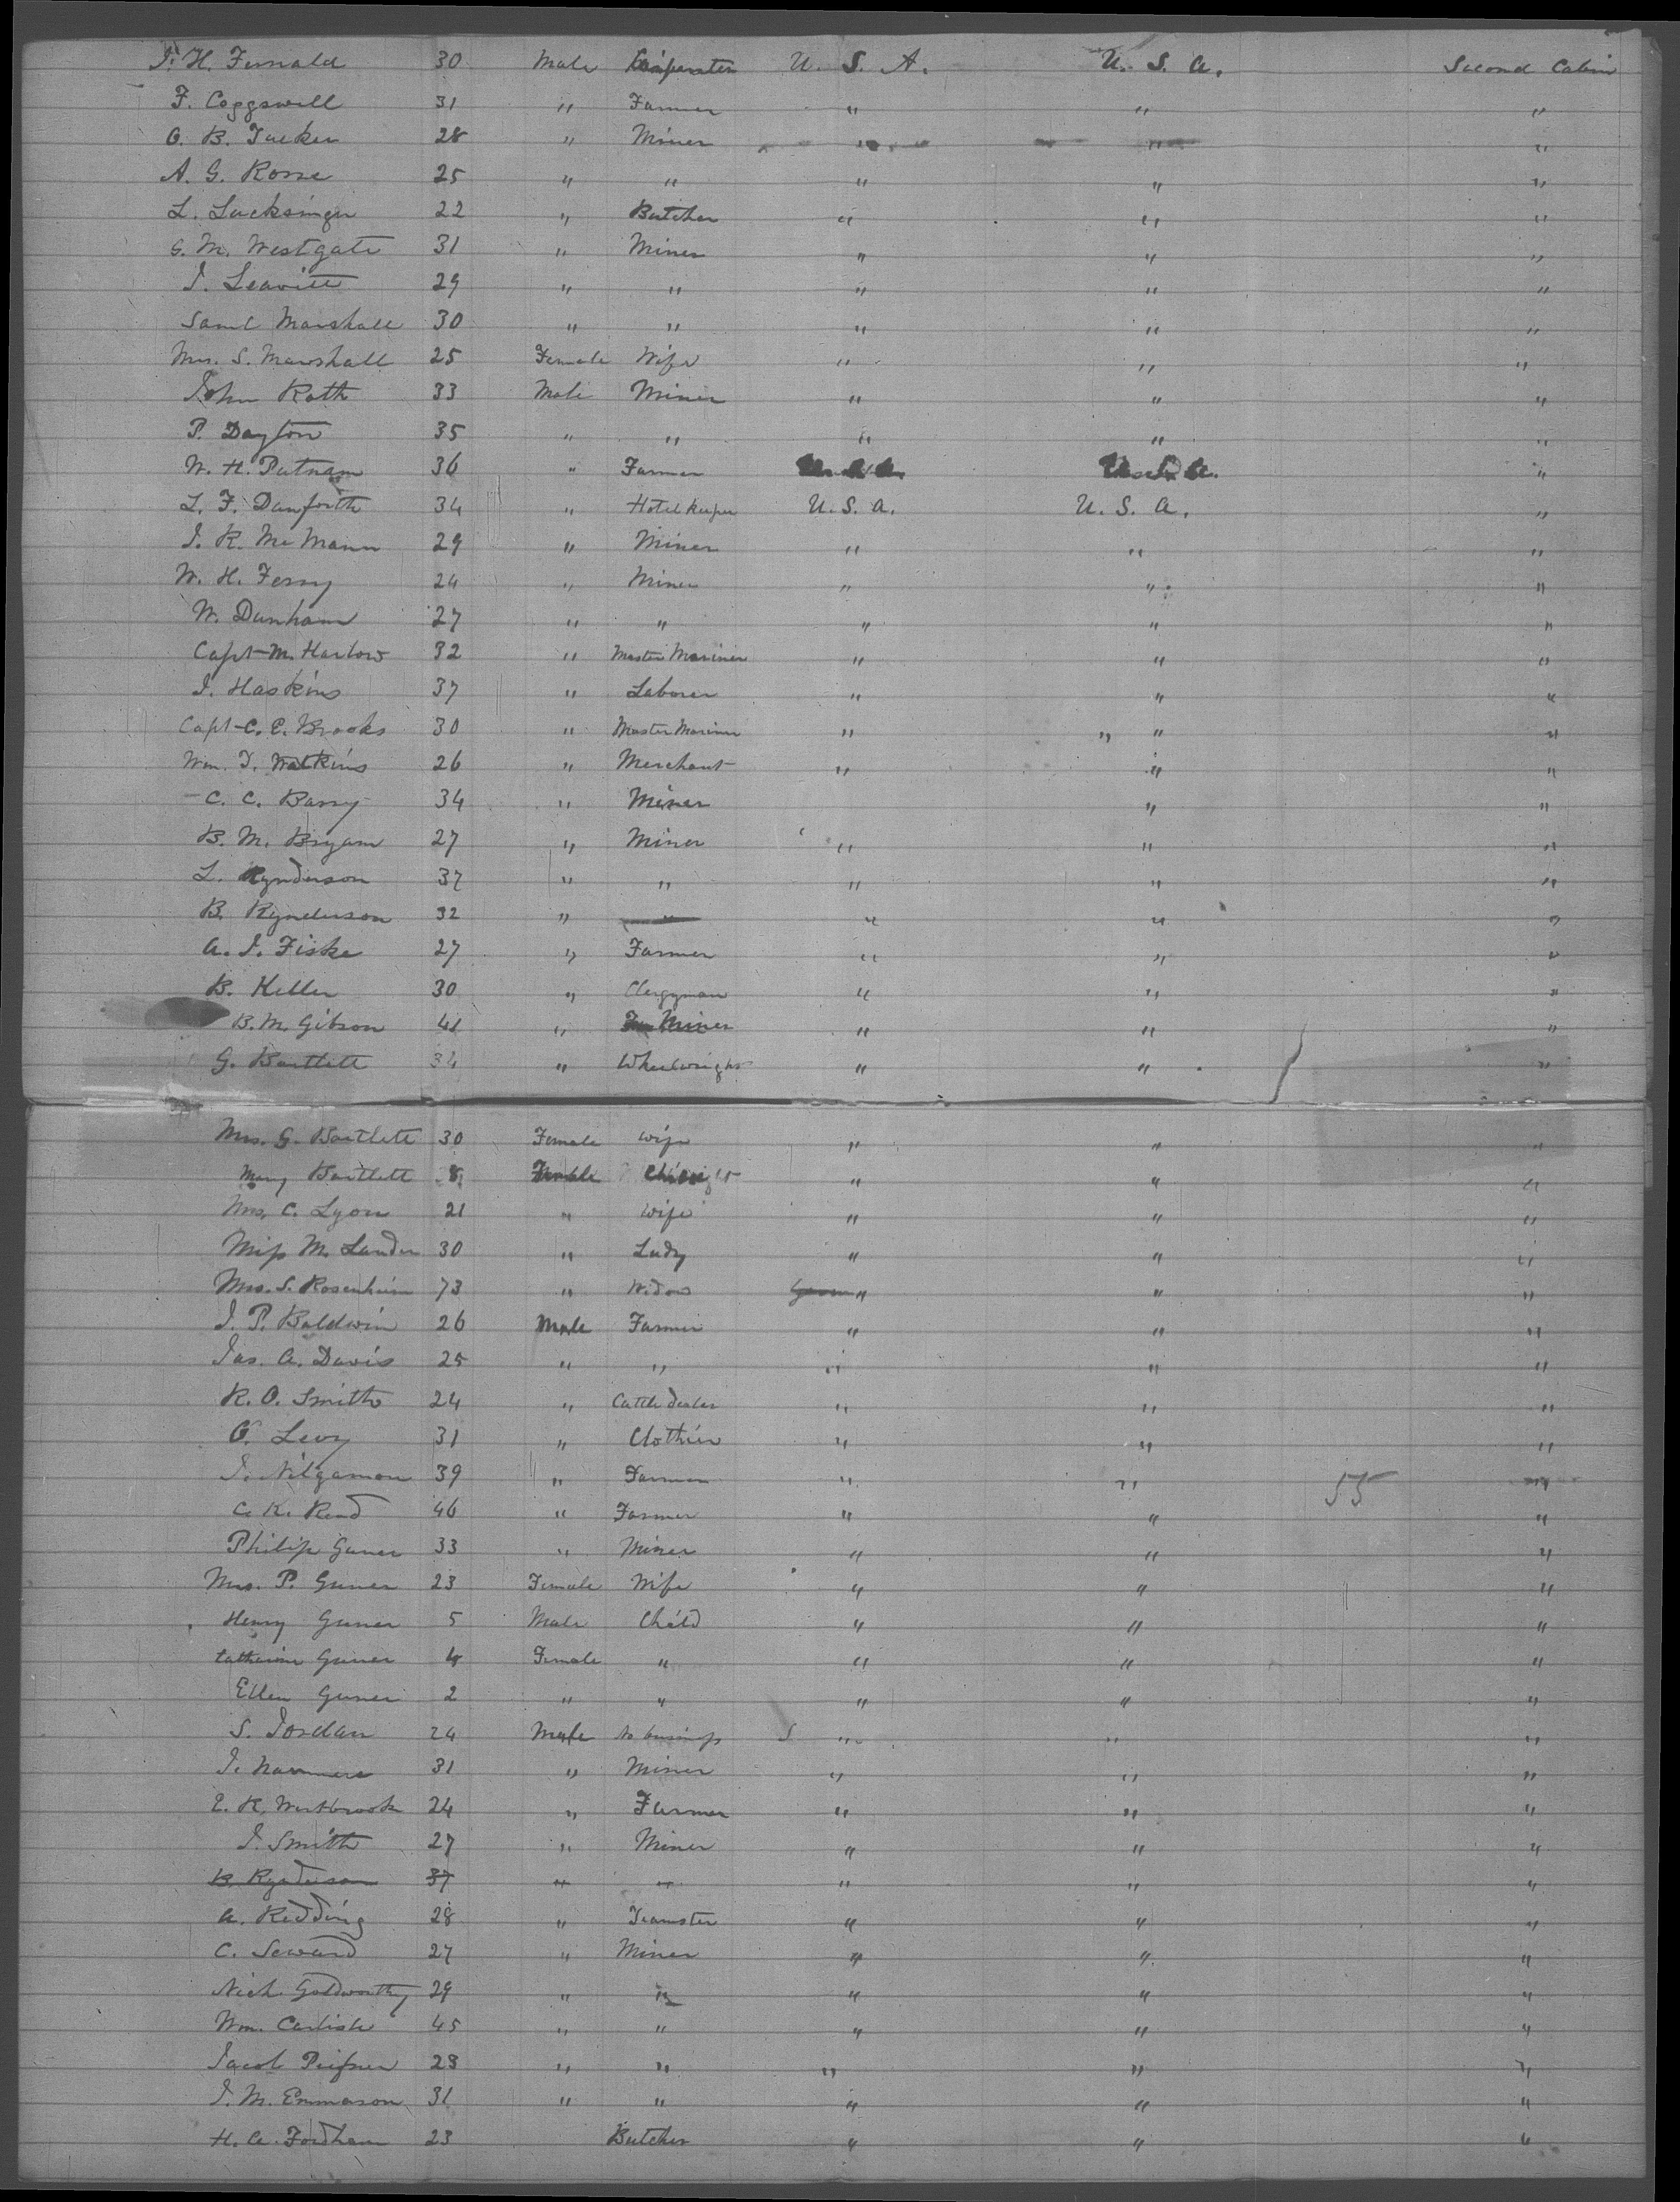 J. H. Fernald 30 Male Carpenter U. S. A. U. S. A. Second Cabin
F. Coggswell 31 " Farmer " " "
O. B. Tucker 28 " Miner " " "
A. G. Rosse 25 " " " " "
L. Lucksinger 22 " Butcher " " "
G. M. Westgate 31 " Miner " " "
J. Leavitt 29 " " " " "
Saml Marshall 30 " " " " "
Mrs. S. Marshall 25 Female Wife " " "
John Rath 33 Male Miner " " "
P. Dayton 35 " " " " "
W. H. Putnam 36 " Farmer U. S. A. U. S. A. "
L. F. Danforth 34 " Hotel Keeper U. S. A. U. S. A. "
J. R. McMann 29 " Miner " " "
W. H. Ferry 24 " Miner " " "
W. Dunham 27 " " " " "
Capt M. Harlow 32 " Master Mariner " " "
J. Haskins 37 " Laborer " " "
Capt C. E. Brooks 30 " Master Mariner " " " "
Wm. T. Watkins 26 " Merchant " " "
C. C. Barry 34 " Miner " "
B. M. Bryam 27 " Miner " " "
L. Rynderson 37 " " " " "
B. Rynderson 32 " " " " "
A. J. Fiske 27 " Farmer " " "
B. Keller 30 " Clergyman " " "
B. M. Gibson 41 " Miner " " "
G. Bartlett 34 " Wheelwright " " "
Mrs. G. Bartlett 30 Female wife " " "
Mary Bartlett 8 Female Child " " "
Mrs. C. Lyon 21 " wife " " "
Miss M. Lander 30 " Lady " " "
Mrs. S. Rosenheim 73 " Widow " " "
J. P. Baldwin 26 Male Farmer " " "
Jas. A. Davis 25 " " " " "
R. O. Smith 24 " Cattle dealer " " "
O. Levy 31 " Clothier " " "
J. Nilgamon 39 " Farmer " " 55 "
C. K. Rend 46 " Farmer " " "
Philip Guner 33 " Miner " " "
Mrs. P. Guner 23 Female Wife " " "
Henry Guner 5 Male Child " " "
Catharine Guner 4 Female " " " "
Ellen Guner 2 " " " " "
S. Jordan 24 Male No business S " " "
J. 31 " Miner " " "
E. K. Westbrook 24 " Farmer " " "
J. Smith 27 " Miner " " "
B. Rynderson 37 " " " " "
A. Redding 28 " Teamster " " "
C. Seward 27 " Miner " " "
Nich. Goldworthy 29 " " " " "
Wm. Carlisle 45 " " " " "
Jacob 28 " " " " "
J. M. Emmason 31 " " " " "
H. A. Fordham 23 Butcher " " "